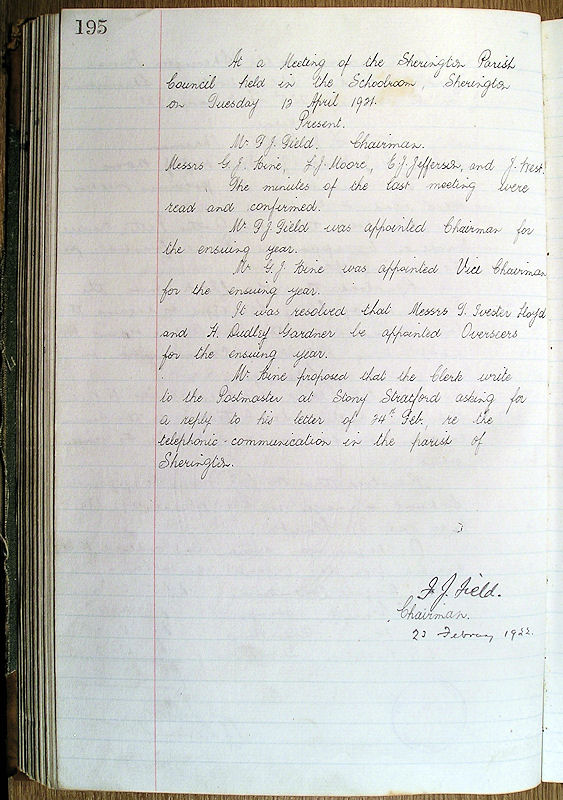 195
At a Meeting of the Sherington Parish
Council held in the Schoolroom, Sherington
on Tuesday 12 April 1921.
Present.
Mr F J Field. Chairman.
Messrs G. J. Hine, L J Moore, C J Jefferson, and J. West.
The minutes of the last meeting were
read and confirmed.
Mr F J Field was appointed Chairman for
the ensuing year.
Mr G. J. Hine was appointed Vice Chairman
for the ensuing year.
It was resolved that Messrs T. Ivester Lloyd
and H. Dudley Gardner be appointed Overseers
for the ensuing year.
Mr Hine proposed that the Clerk write
to the Postmaster at Stony Stratford asking for
a reply to his letter of 24th Feb, re the
telephonic-communication in the parish of
Sherington.
F. J. Field.
Chairman.
23 February 1922.